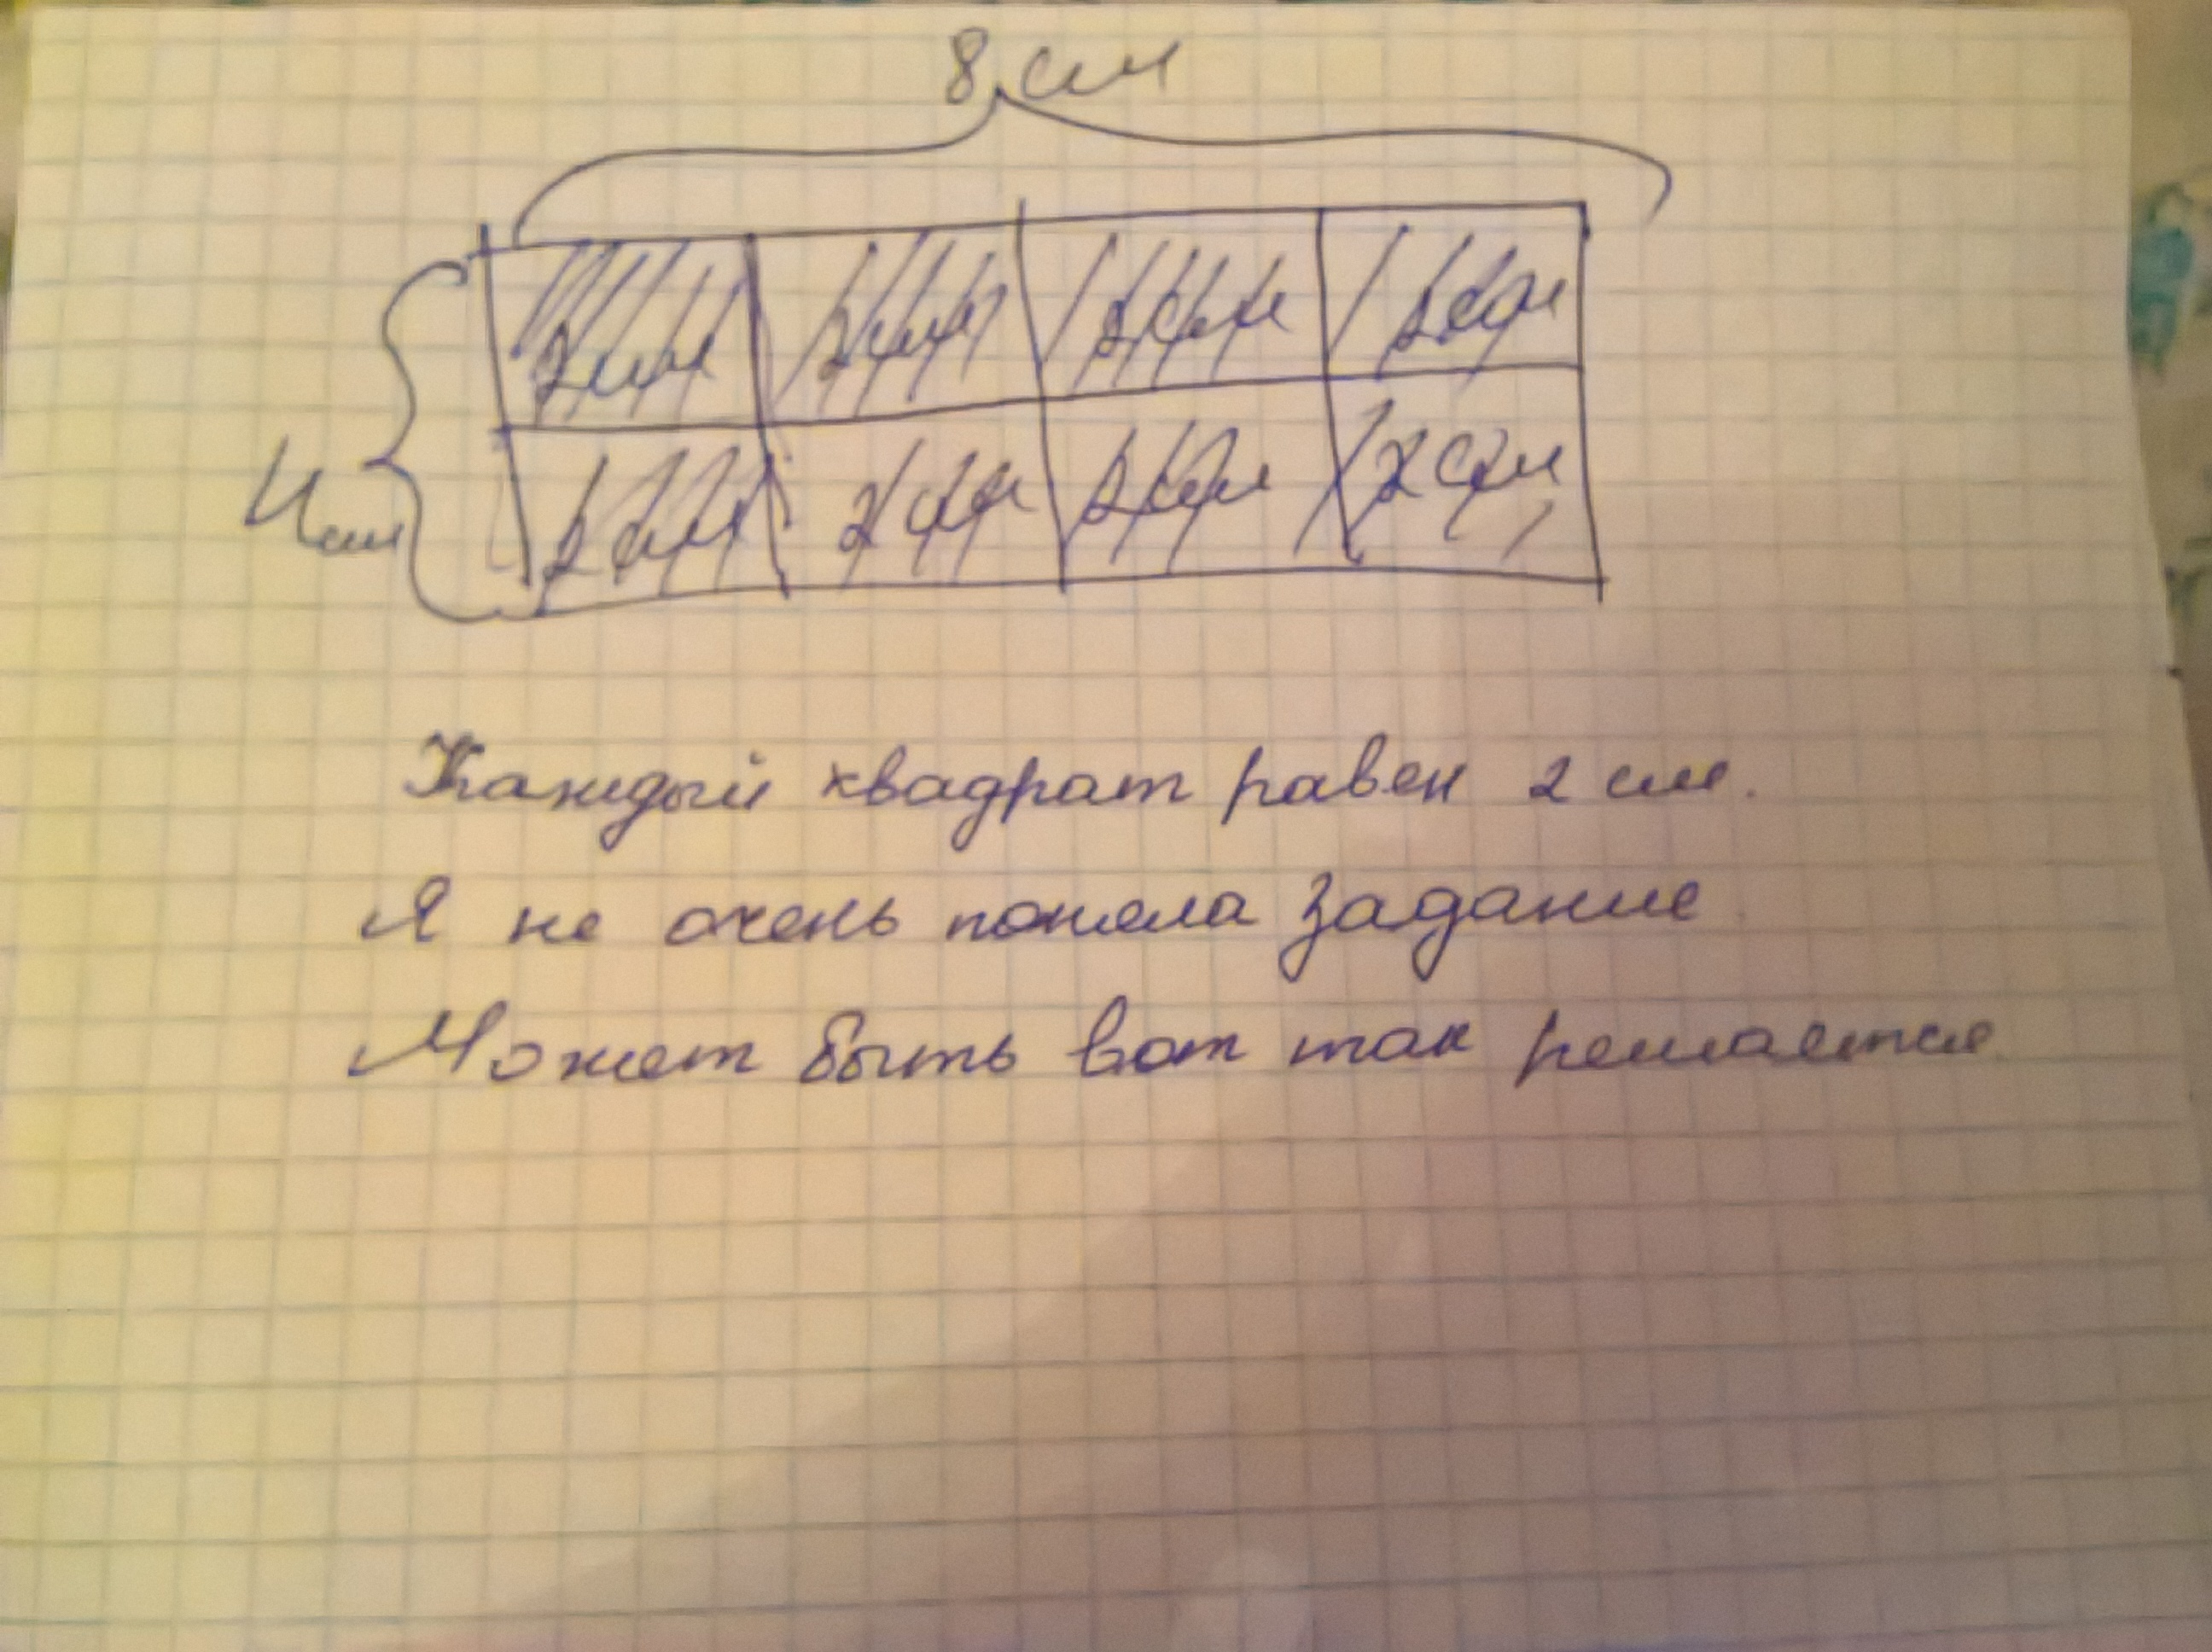 8 см
2 см 2 см 2 см 2 см
4 см
2 см 2 см 2 см 2 см
Каждый квадрат равен 2 см.
Я не очень поняла задание
Может быть вот так решается